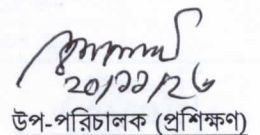 ২০/১১/২৬
উপ-পরিচালক (প্রশিক্ষণ)